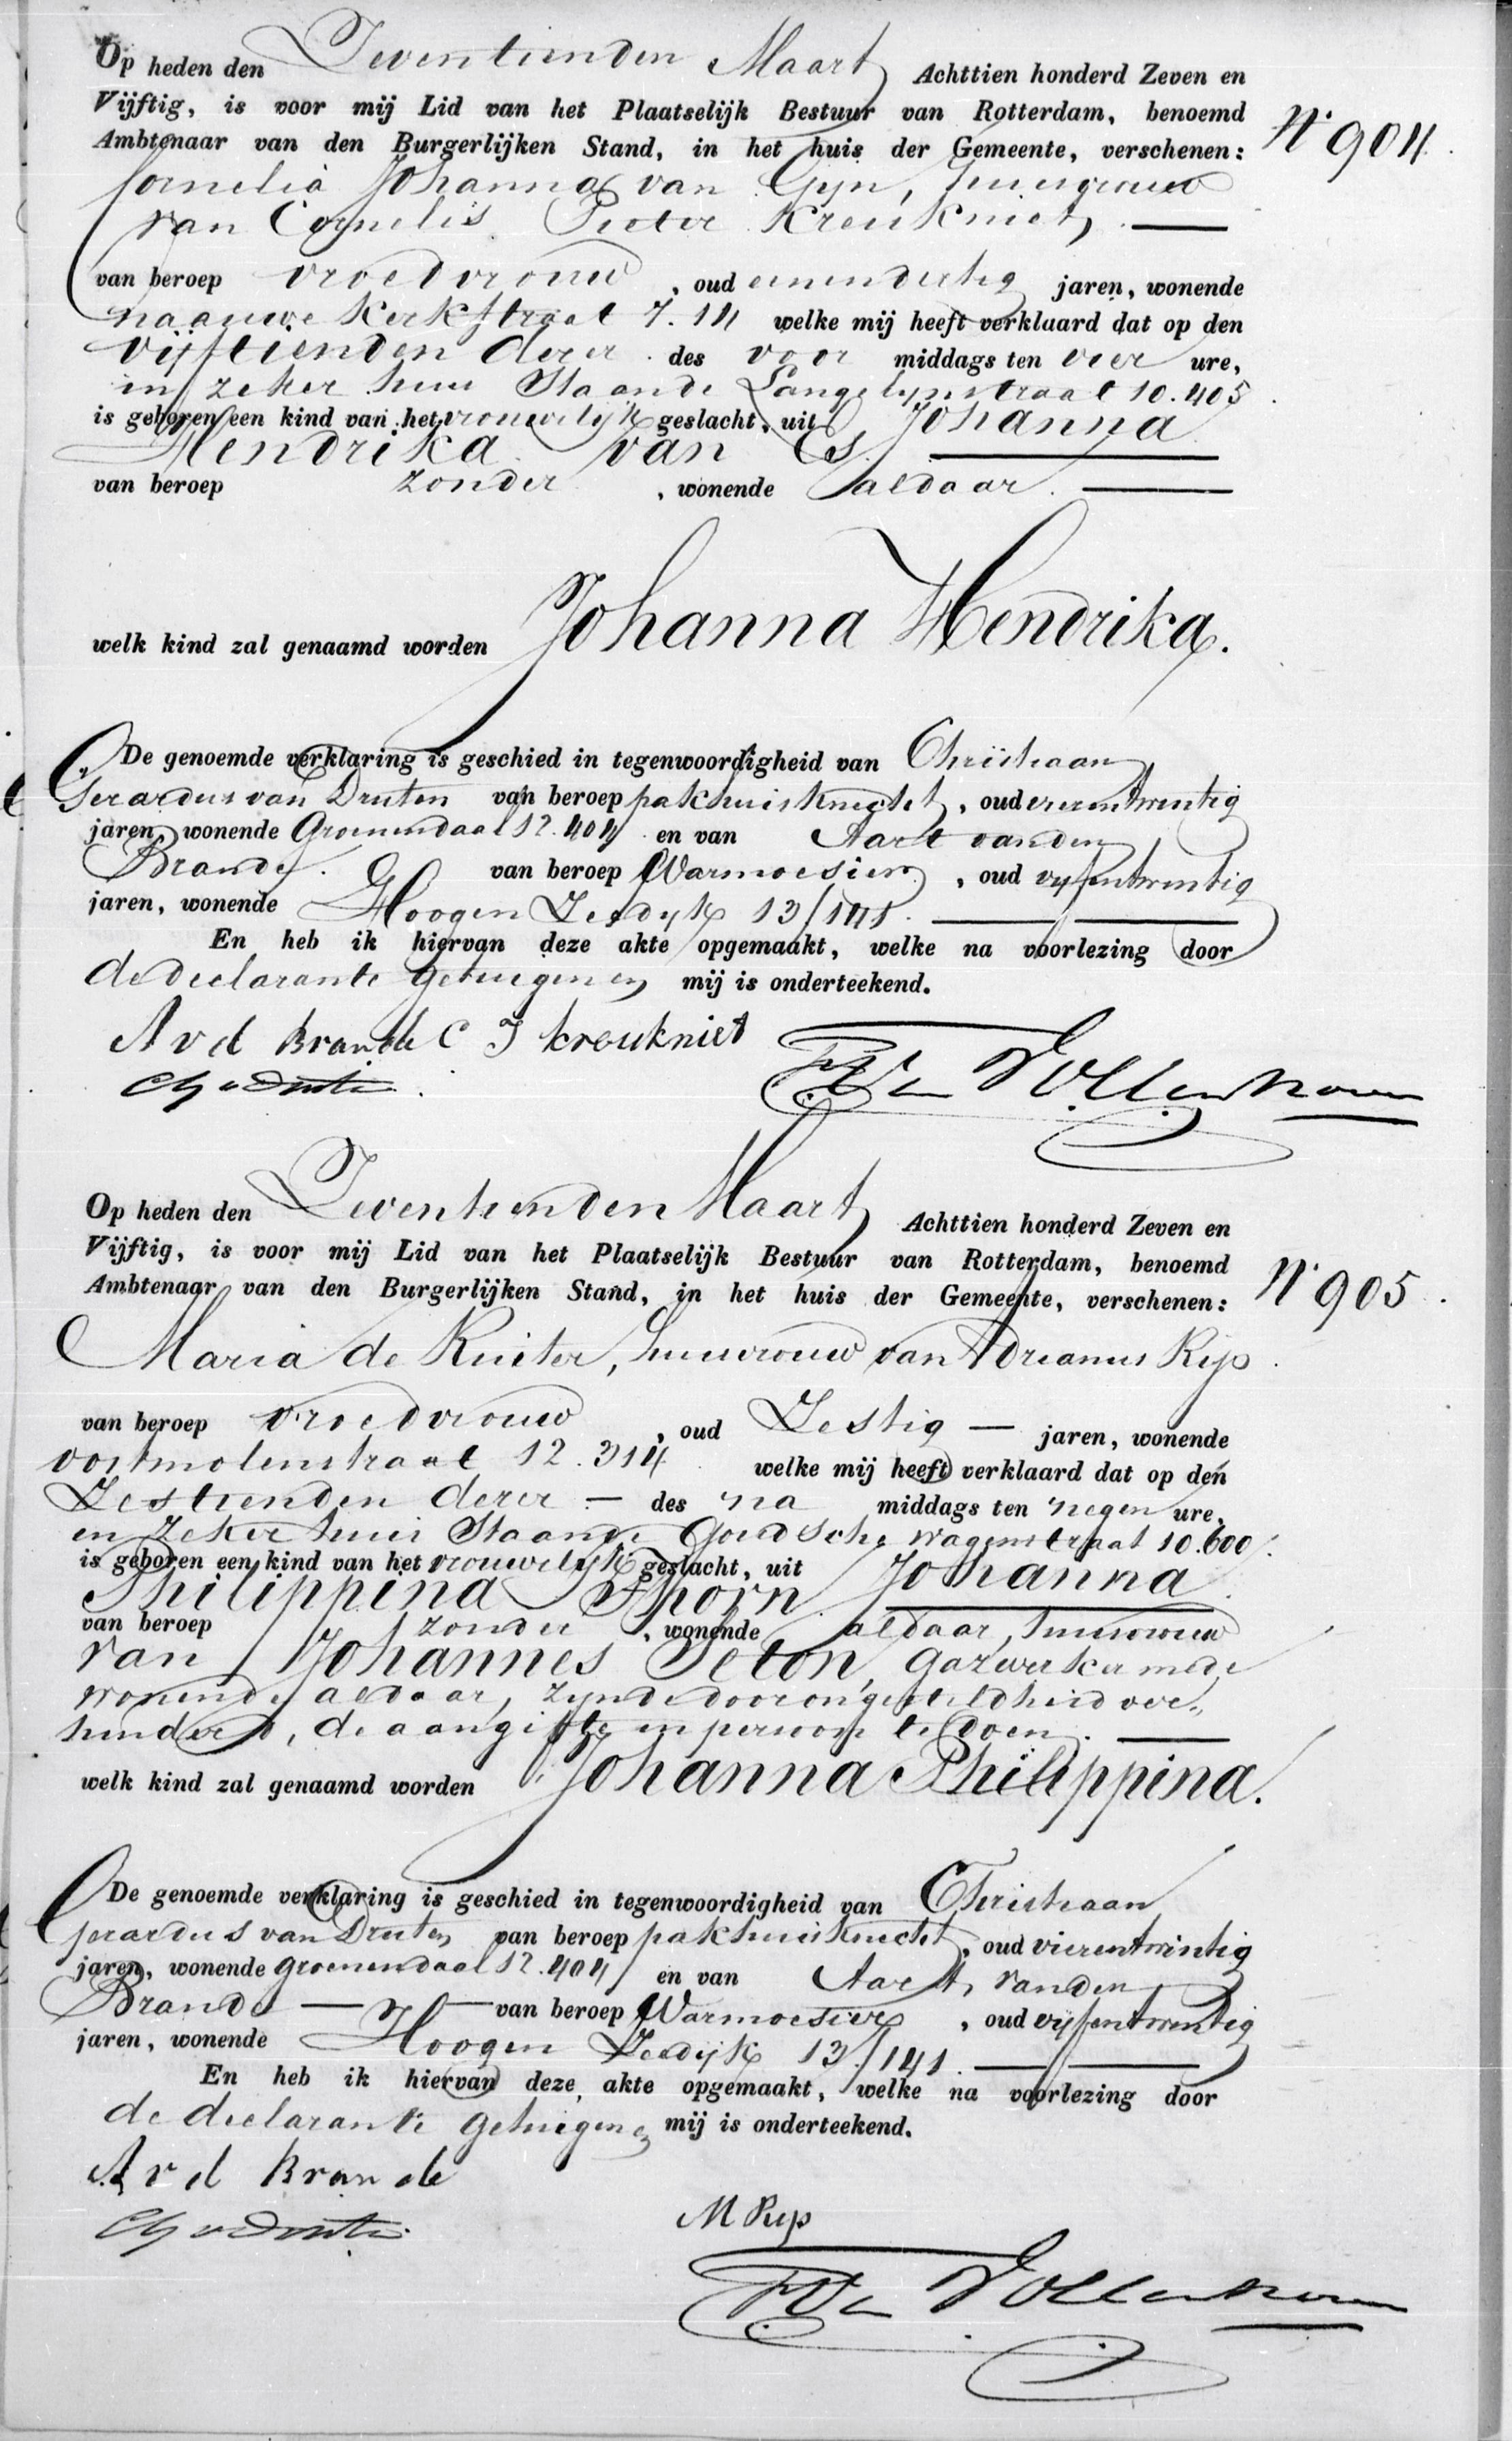 Op heden den Zeventienden Maart Achttien honderd Zeven en
Vijftig, is voor mij Lid van het Plaatselijk Bestuur van Rotterdam, benoemd
Ambtenaar van den Burgerlijken Stand, in het huis der Gemeente, verschenen:
No 904.
Cornelia Johanna van Gyn, huisvrouw
van Cornelis Pieter Kreukniet,
van beroep vroedvrouw, oud eenendertig jaren, wonende
naauwe Kerkstraat 7.14 welke mij heeft verklaard dat op den
vijftienden dezer des voor middags ten vier ure,
in zeker huis staande Langelynstraat 10.405
is geboren een kind van het vrouwelijk geslacht, uit Johanna
Hendrika van Es
van beroep zonder, wonende aldaar.
welk kind zal genaamd worden Johanna Hendrika.
De genoemde verklaring is geschied in tegenwoordigheid van Christiaan
Gerardus van Druten van beroep pakhuisknecht, oud vierentwintig
jaren, wonende Groenendaal 12.404 en van Aart van den
Brande. van beroep Warmoesier, oud vyfentwintig
jaren, wonende Hoogen Zeedyk 13/141.
En heb ik hiervan deze akte opgemaakt, welke na voorlezing door
de declarante getuigen en mij is onderteekend.
A v d Brande C J Kreukniet
Op heden den Zeventienden Maart Achttien honderd Zeven en
Vijftig, is voor mij Lid van het Plaatselijk Bestuur van Rotterdam, benoemd
Ambtenaar van den Burgerlijken Stand, in het huis der Gemeente, verschenen:
No 905.
Maria de Ruiter, huisvrouw van Adrianus Rijp
van beroep vroedvrouw, oud Zestig — jaren, wonende
oostmolenstraat 12.314 welke mij heeft verklaard dat op den
Zestienden dezer — des na middags ten negen ure,
in zeker huis staande Goudsche wagenstraat 10.600.
is geboren een kind van het vrouwelijk geslacht, uit Johanna
Philippina Thorn
van beroep zonder, wonende aldaar, huisvrouw
van Johannes Teton, gazwerker mede
wonende aldaar, zynde door ongesteldheid ver„
hinderd, de aangifte in persoon te doen.
welk kind zal genaamd worden Johanna Philippina.
De genoemde verklaring is geschied in tegenwoordigheid van Christiaan
Gerardus van Druten van beroep pakhuisknecht, oud vierentwintig
jaren, wonende Groenendaal 12.404 en van Aart van den
Brande — van beroep Warmoesier, oud vijfentwintig
jaren, wonende Hoogen Zeedijk 13/141.
En heb ik hiervan deze akte opgemaakt, welke na voorlezing door
de declarante getuigen en mij is onderteekend.
A v d Brande
M Rijp